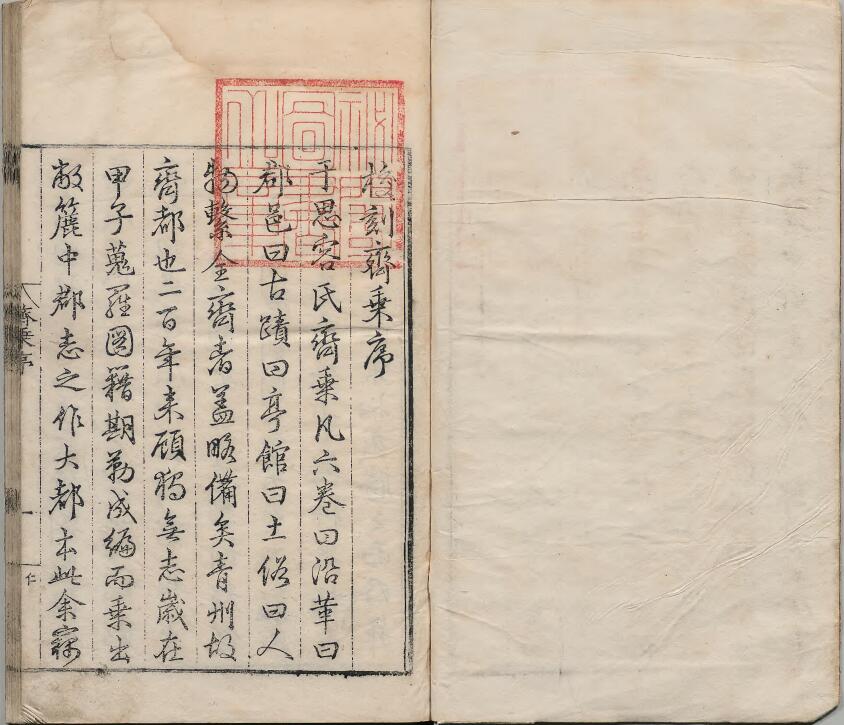 挍刻齊乘序
于思容氏齊乘凡六卷曰沿革曰
郡邑曰古蹟曰亭館曰土俗曰人
物繫全齊者蓋略備矣青州故
齊都也二百年来顧獨無志歲在
甲子蒐羅圖籍期勒成編而乘出
敝簏中郡志之作大都本此余竊
齊乘序
一
仁